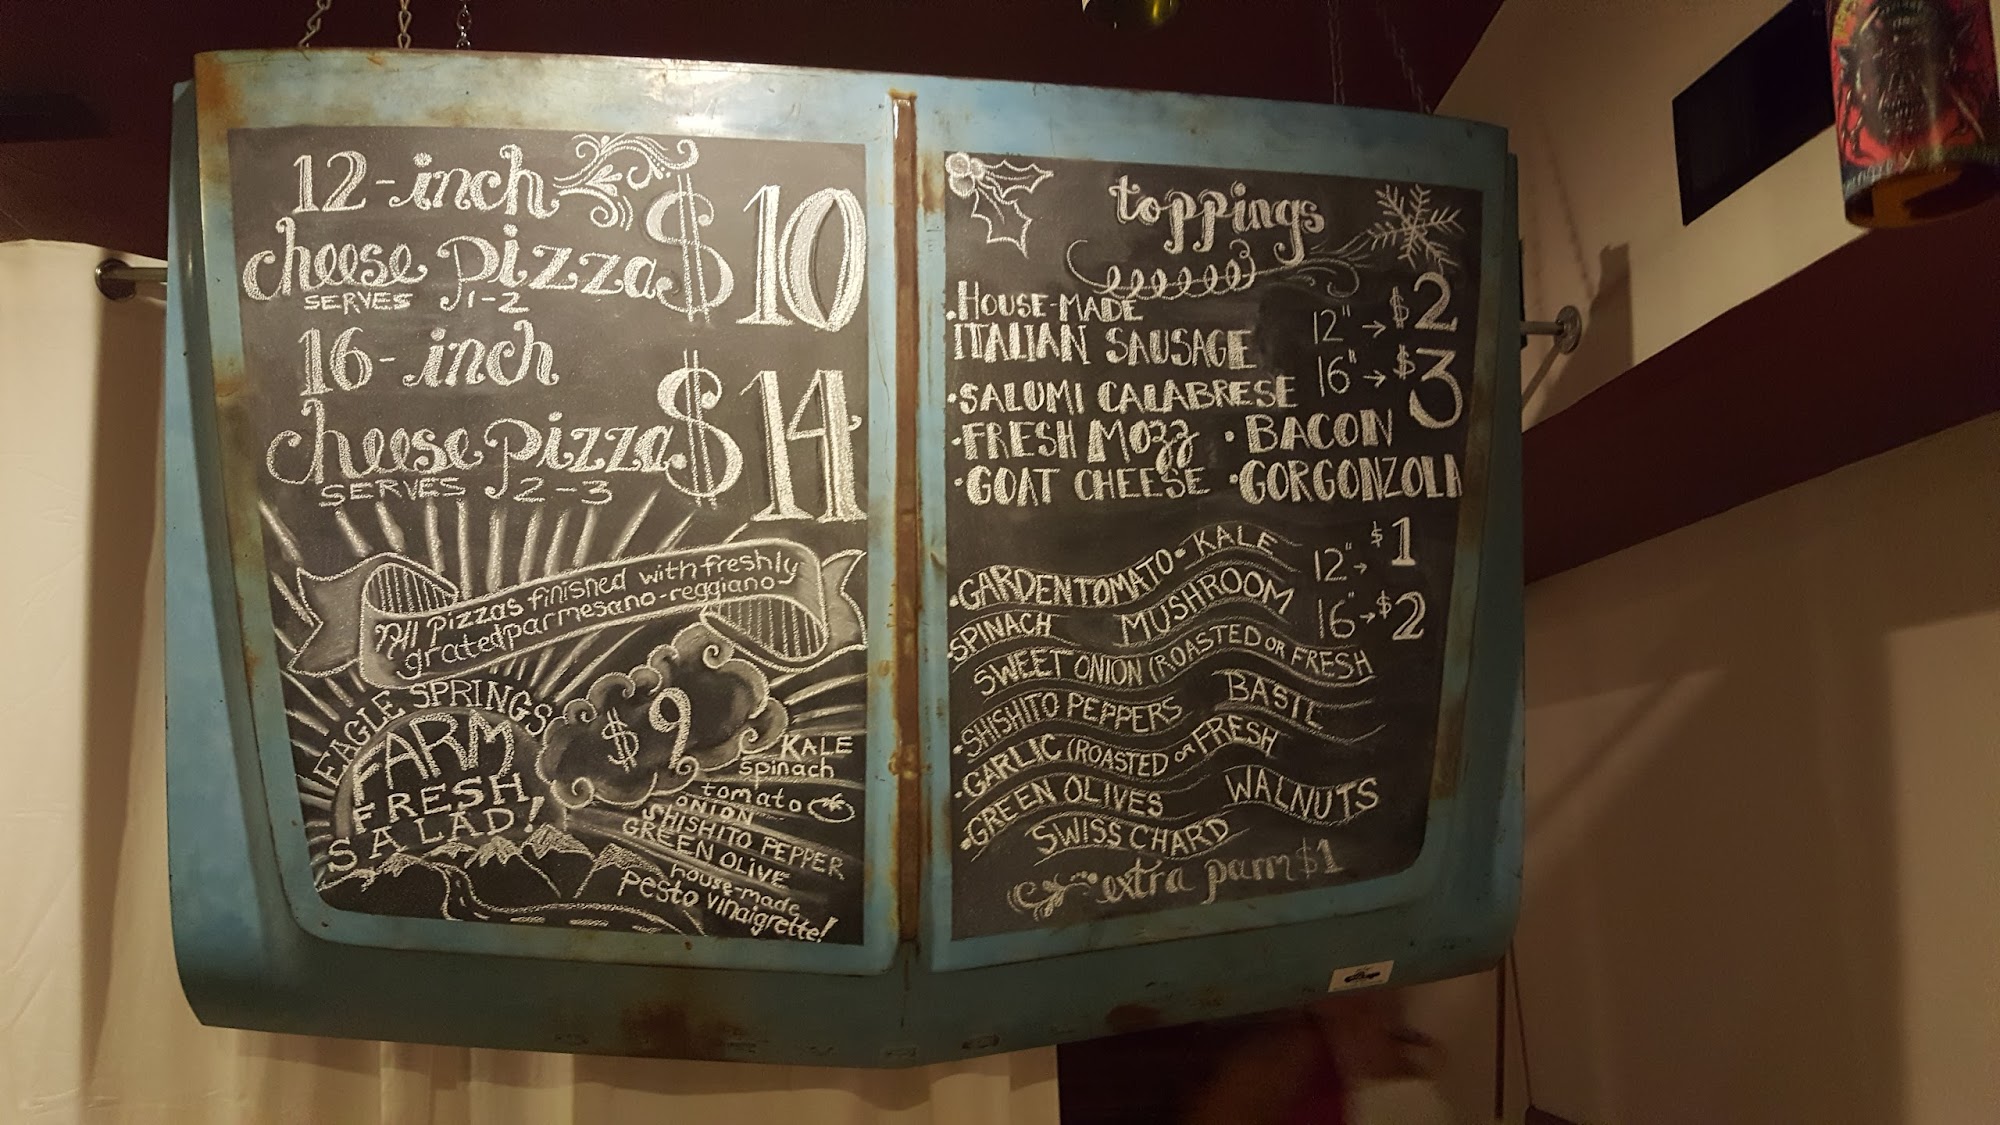 12-inch
cheese pizza $10
SERVES 1-2
16-inch
cheese pizza $14
SERVES 2-3
All pizzas finished with freshly
grated parmesano-reggiano
EAGLE SPRINGS
FARM
FRESH
SALAD!
$9
KALE
spinach
tomato
ONION
SHISHITO PEPPER
GREEN OLIVE
house-made
pesto vinaigrette!
toppings
.HOUSE-MADE
ITALIAN SAUSAGE
12" → $2
16" → $3
·SALUMI CALABRESE
·FRESH MOZZ ·BACON
·GOAT CHEESE ·GORGONZOLA
12" → $1
16" → $2
·GARDEN TOMATO· KALE
SPINACH MUSHROOM
SWEET ONION (ROASTED OR FRESH
·SHISHITO PEPPERS BASIL
·GARLIC (ROASTED OR FRESH
·GREEN OLIVES WALNUTS
SWISS CHARD
extra parm $1